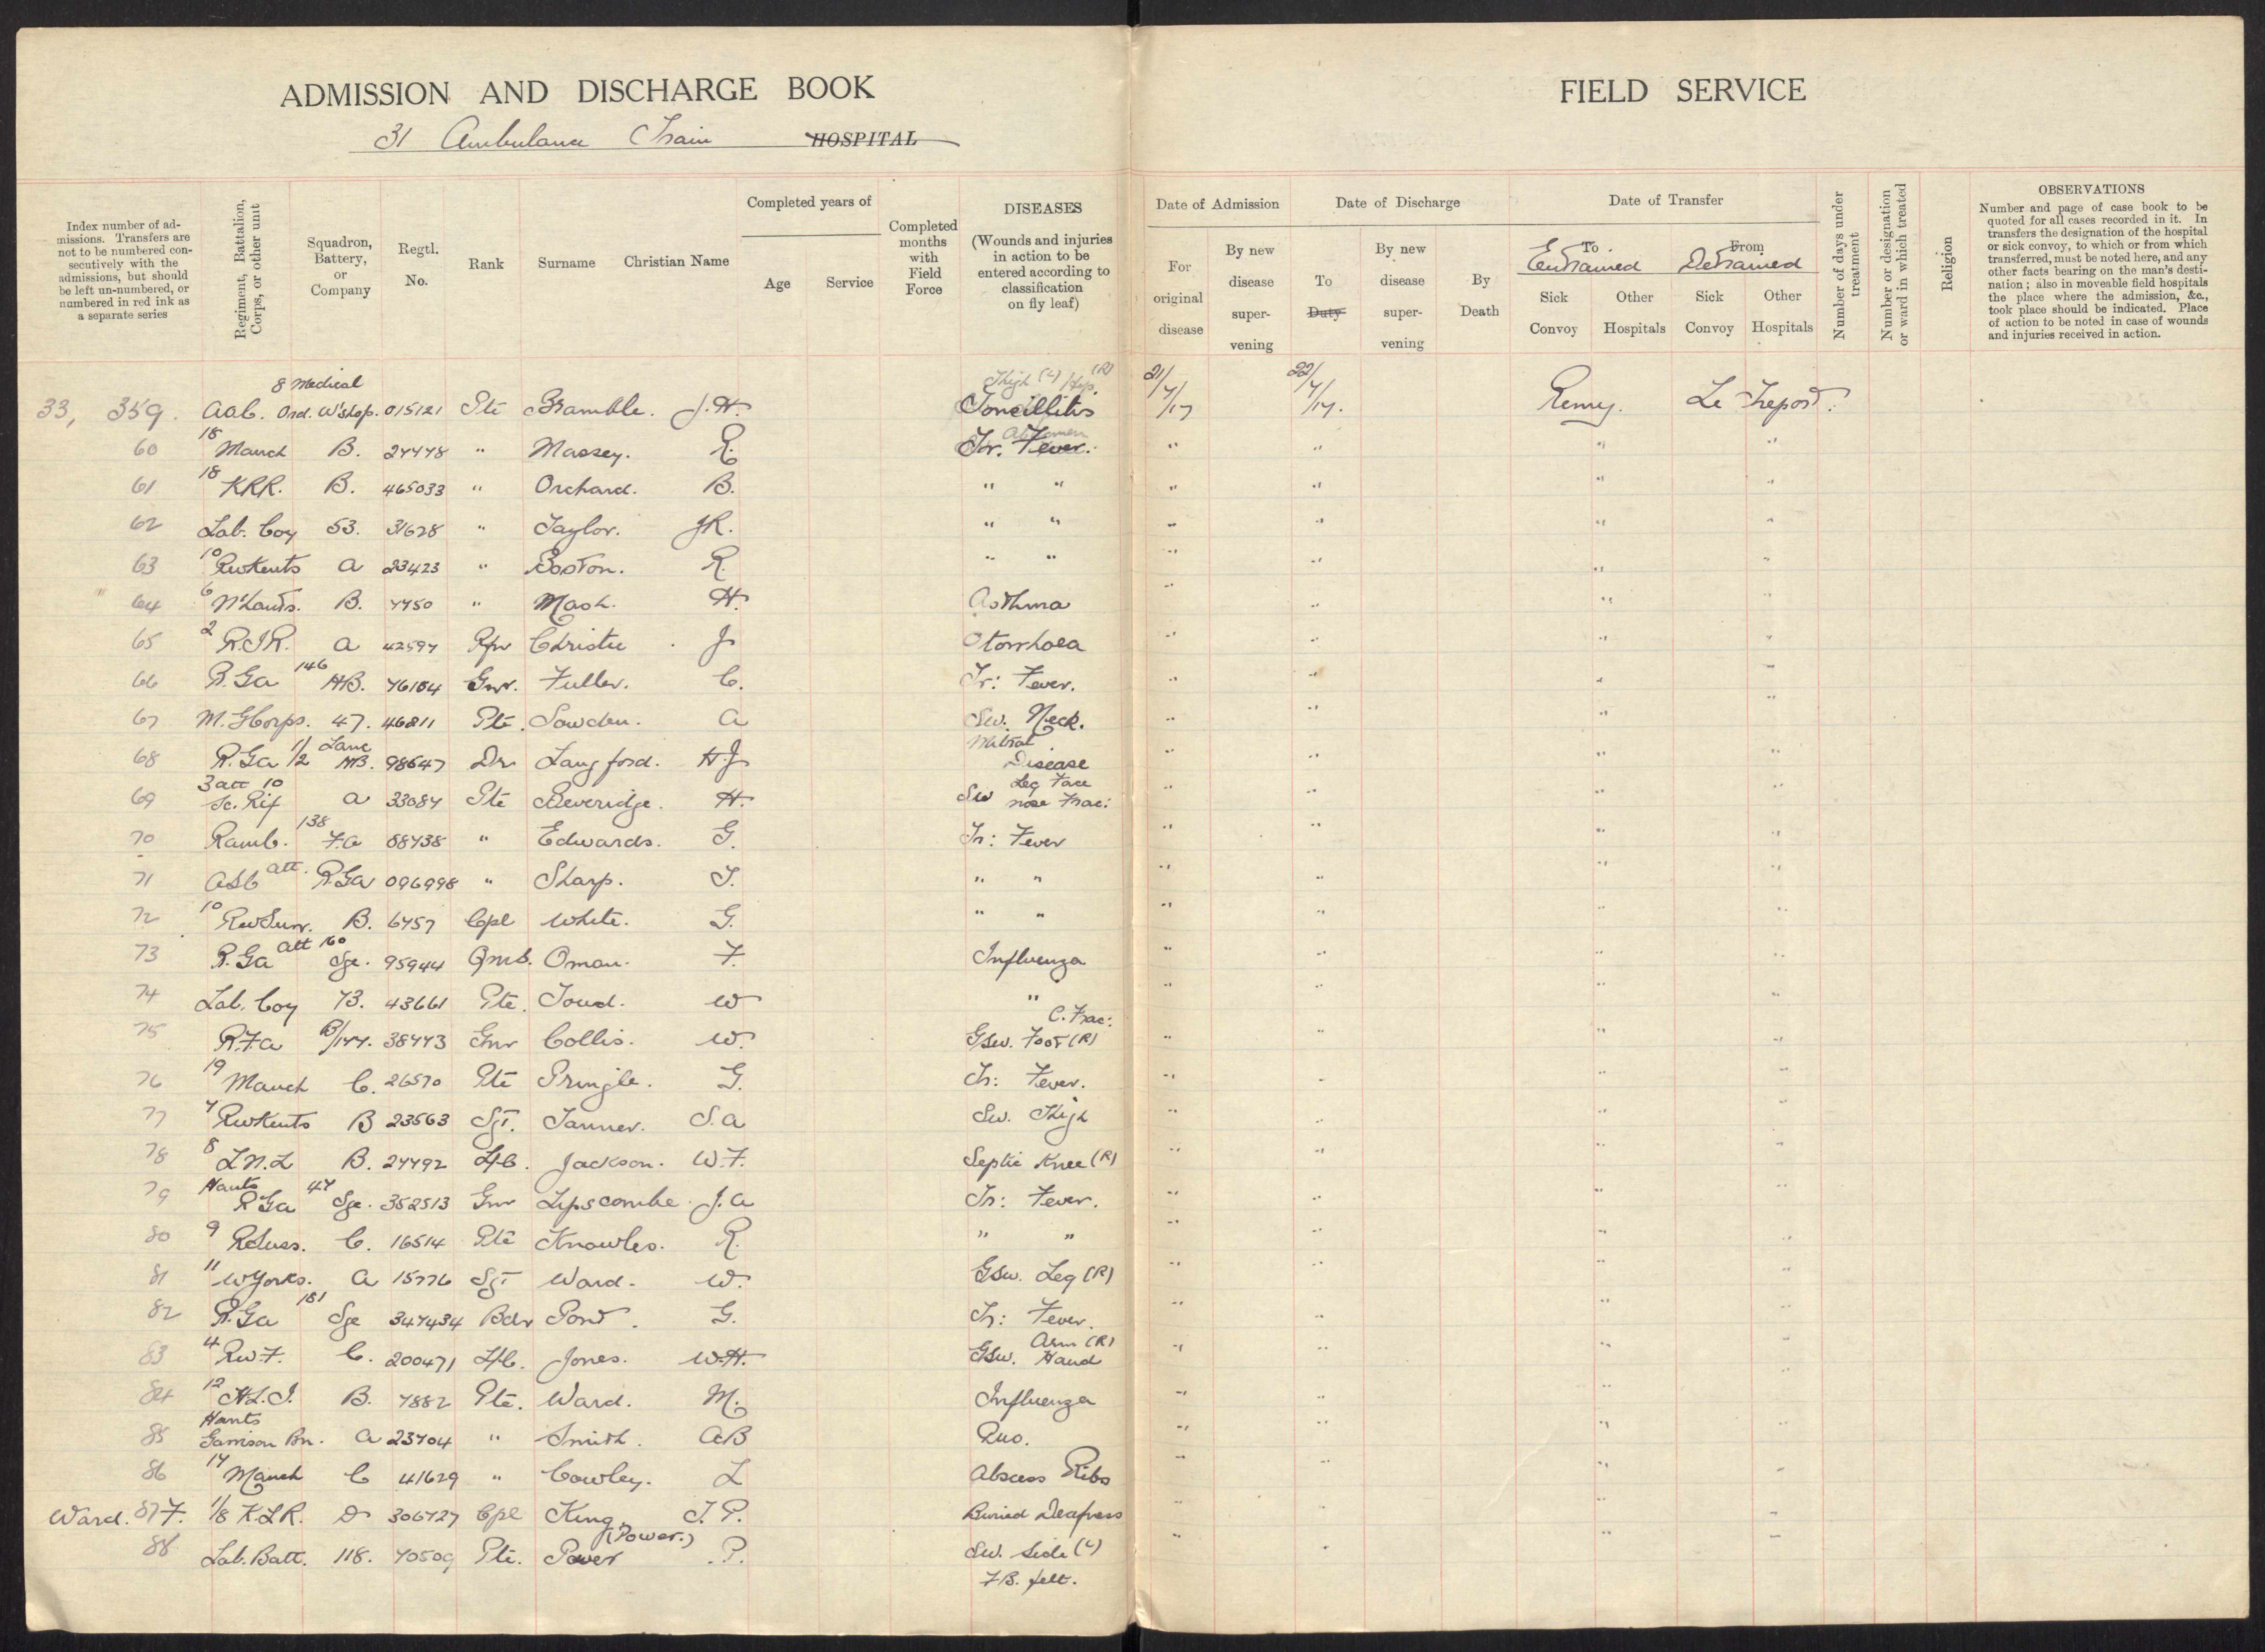 ADMISSION AND DISCHARGE BOOK
31 Ambulance Train HOSPITAL
FIELD SERVICE
Index number of admissions. Transfers are not to be numbered consecutively with the admissions, but should be left un-numbered, or numbered in red ink as a separate series
Regiment, Battalion, Corps, or other unit
Squadron, Battery, or Company
Regtl. No.
Rank
Surname
Christian Name
Completed years of
Age
Service
Completed months with Field Force
DISEASES
(Wounds and injuries in action to be entered according to classification on fly leaf)
Date of Admission
For original disease
By new disease supervening
Date of Discharge
To Duty
By new disease supervening
By Death
Date of Transfer
To
Entrained
From
Detrained
Sick Convoy
Other Hospitals
Sick Convoy
Other Hospitals
Number of days under treatment
Number or designation or ward in which treated
Religion
OBSERVATIONS
Number and page of case book to be quoted for all cases recorded in it. In transfers the designation of the hospital or sick convoy, to which or from which transferred, must be noted here, and any other facts bearing on the man's destination; also in moveable field hospitals the place where the admission, &c., took place should be indicated. Place of action to be noted in case of wounds and injuries received in action.
8 Medical Thigh (L) Hip (R)
33, 359. Ord. W'shop. 015121 Pte Bramble. J.H. Toncillitis 21/7/17 22/7/17. Remy. Le Treport.
60 18 Manch B. 27478 " Massey. R. Tr. Fever. " " " "
61 18 KRR. B. 465033 " Orchard. B. " " " " " "
62 Lab. Coy 53. 31628 " Taylor. JR. " " " " " "
63 10 RwKents A 23423 " Boston. R. " " " " " "
64 6 N'hants. B. 7750 " Mash. H. Asthma " " " "
65 2 R.I.R. A 42597 Rfn Christie J Otorrhoea " " " "
66 R.Ga 146 HB. 76104 Gnr. Fuller. C. Tr: Fever. " " " "
67 M.G Corps. 47. 46811 Pte. Sowden. A Sw. Neck. " " " "
68 R.Ga 1/2 Lanc HB. 98647 Dr Langford. H.J Mitral Disease " " " "
69 3 att 10 Sc. Rif A 33084 Pte Beveridge. H. Sw Leg Face nose Frac: " " " "
70 Ramb. 138 F.A 88738 " Edwards. G. Tr: Fever " " " "
71 ASC att. RGa 096998 " Sharp. T. " " " " " "
72 10 RwSurr. B. 6757 Cpl White. G. " " " " " "
73 R.Ga att 160 Sge. 95944 Qms. Oman. F. Influenza " " " "
74 Lab. Coy 73. 43661 Pte. Toud. W " " " " "
75 R.F.A B/177. 38773 Gnr Collis. W. Gsw. Foot (R) C. Frac: " " " "
76 19 Manch C. 26570 Pte Pringle. G. Tr: Fever. " " " "
77 7 RwKents B 23563 Sgt. Tanner. S.A Sw. Thigh " " " "
78 8 L.N.L B. 27792 L/C. Jackson. W.F. Septic Knee (R) " " " "
79 Hants RGa 47 Sge. 352513 Gnr Lipscombe. J.A Tr: Fever. " " " "
80 9 RSuss. C. 16514 Pte Knowles. R. " " " " " "
81 11 WYorks. A 15776 Sgt Ward. W. Gsw. Leg (R) " " " "
82 R.Ga 181 Sge 347434 Bdr Pont. G. Tr: Fever. " " " "
83 4 RwF. C. 200471 L/C. Jones. W.H. Gsw. Arm (R) Hand " " " "
84 12 H.L.I. B. 7882 Pte. Ward. M. Influenza " " " "
85 Hants Garrison Bn. A 23704 " Smith. AB Puo. " " " "
86 17 Manch C 41629 " Cowley. L Abscess Ribs " " " "
Ward. F. 87 1/8 K.L.R. D 306727 Cpl King. T.P. Buried Deafness " " " "
(Power.)
88 Lab. Batt. 118. 70509 Pte. Power P. Sw. Side (L) " " " "
F.B. felt.